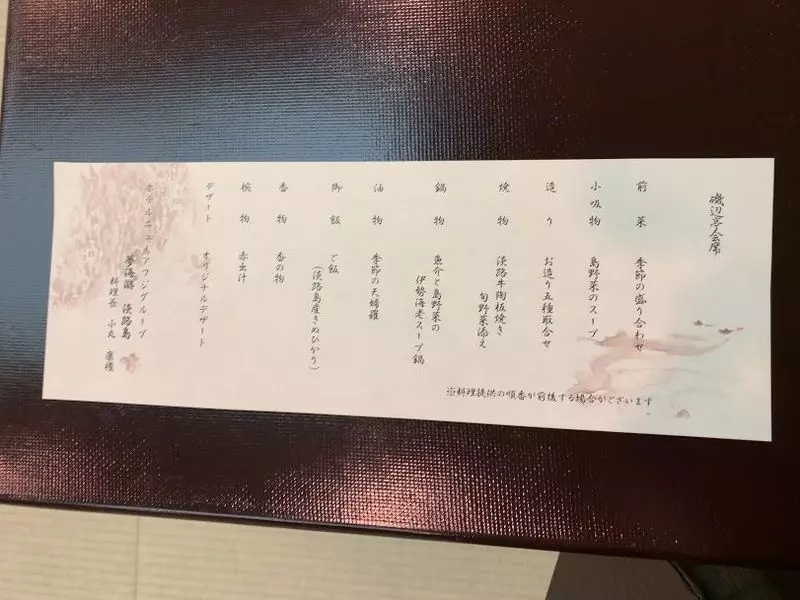 磯辺亭人会席
前菜 季節の盛り合わせ
小吸物 島野菜のスープ
造り お造り五種取合せ
焼物 淡路牛陶板焼き
旬野菜添え
鍋物 魚介と島野菜の
伊勢海老スープ鍋
油物 季節の天婦羅
御飯 ご飯
(淡路島産きぬひかり)
香物 香の物
椀物 赤出汁
デザート オリジナルデザート
ホテルニューアワジグループ
夢海游 淡路島
料理長 小丸
※料理提供の順番が前後する場合がございます